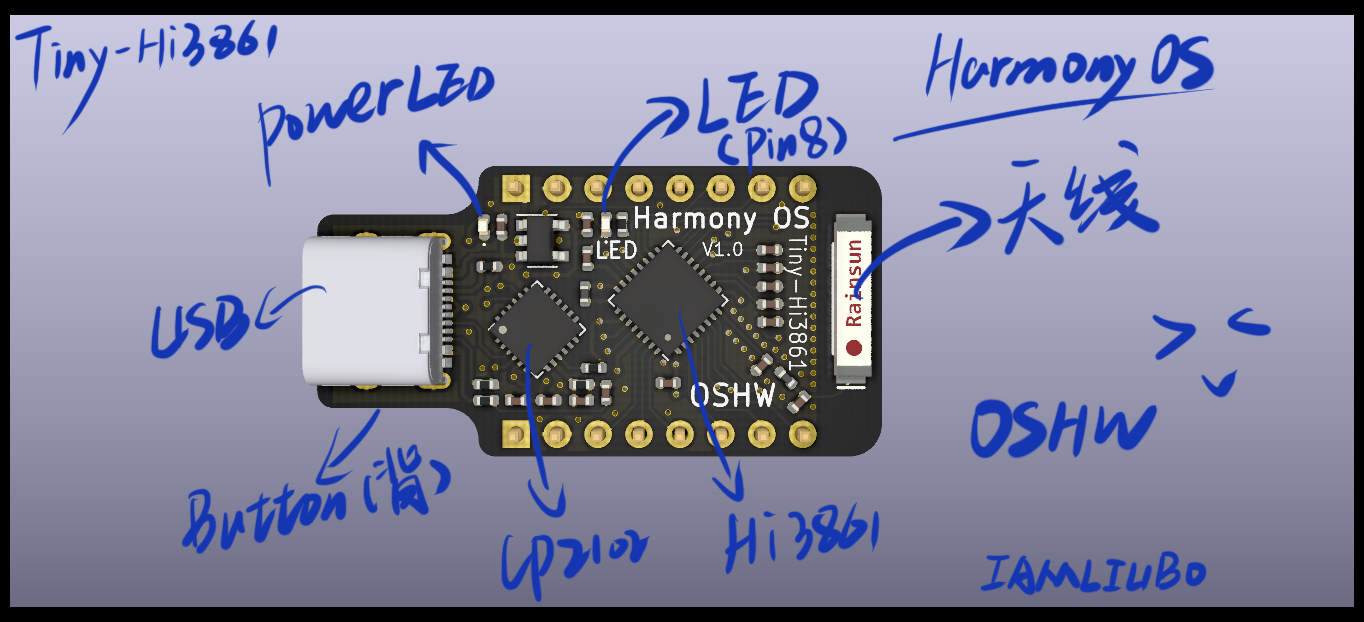 Tiny-Hi3861
powerLED
LED
(Pin8)
Harmony OS
天线
Harmony OS
LED
V1.0
Tiny-Hi3861
Rainsun
USB
OSHW
OSHW
Button(背)
CP2102
Hi3861
IAMLIUBO